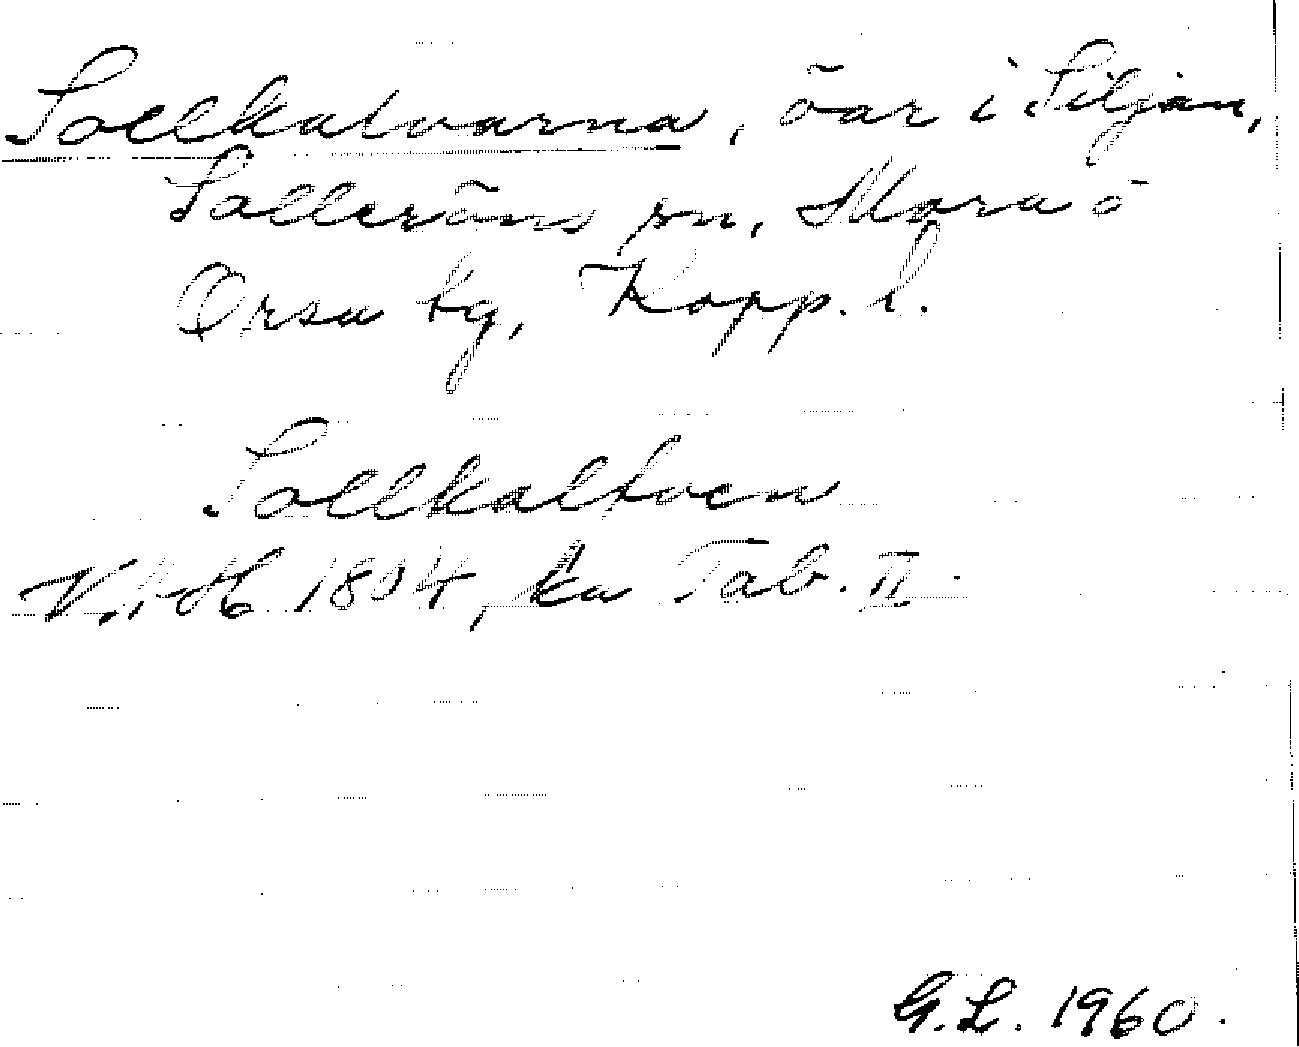 Sollkalvarna, öar i Siljan,
Solleröns sn, Mora o
Orsa tg, Kopp. l.
Sollkalfven
1804, ka Tab. II.
G.L. 1960.